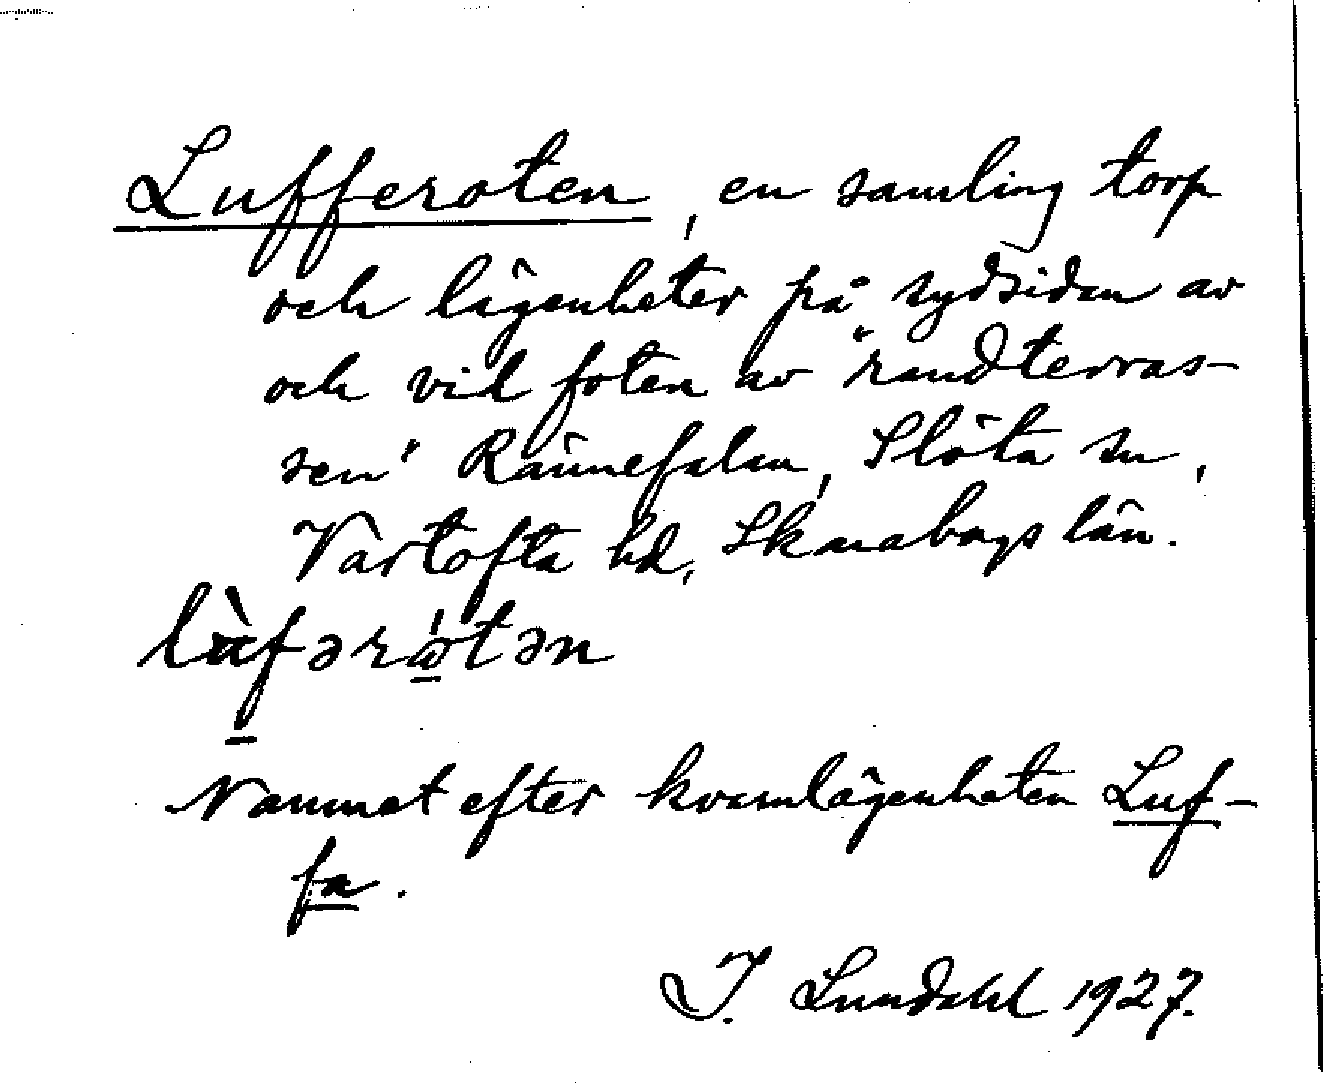 Lufferoten, en samling torp
och lägenheter på sydsidan av
och vid foten av "randterras-
sen" Rännefalan, Slöta sn,
Vartofta hd, Skaraborgs län.
lùfərátən
Namnet efter kvarnlägenheten Luf-
fa.
I. Lundahl 1927.